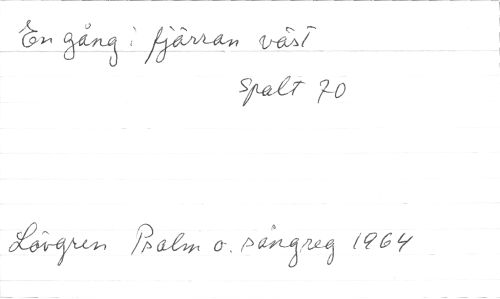 En gång i fjärran väst
Spalt 70
Lövgren Psalm o. sångreg 1964